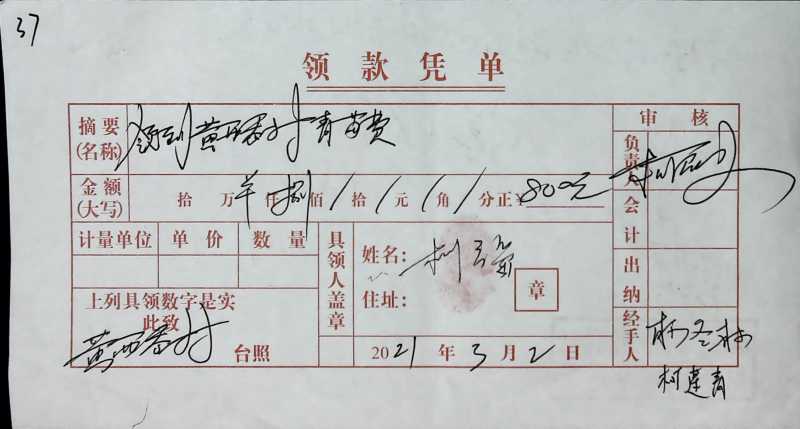 37
领款凭单
摘要
(名称)
领到黄西村青苗费
审核
负责人
金额
(大写)
拾 万 仟 捌 佰 / 拾 / 元 / 角 / 分正 ¥ 800元
会计
计量单位 单价 数量
具领人盖章
姓名:
住址:
章
出纳
上列具领数字是实
此致
台照
2021年3月2日
经手人
柯建青